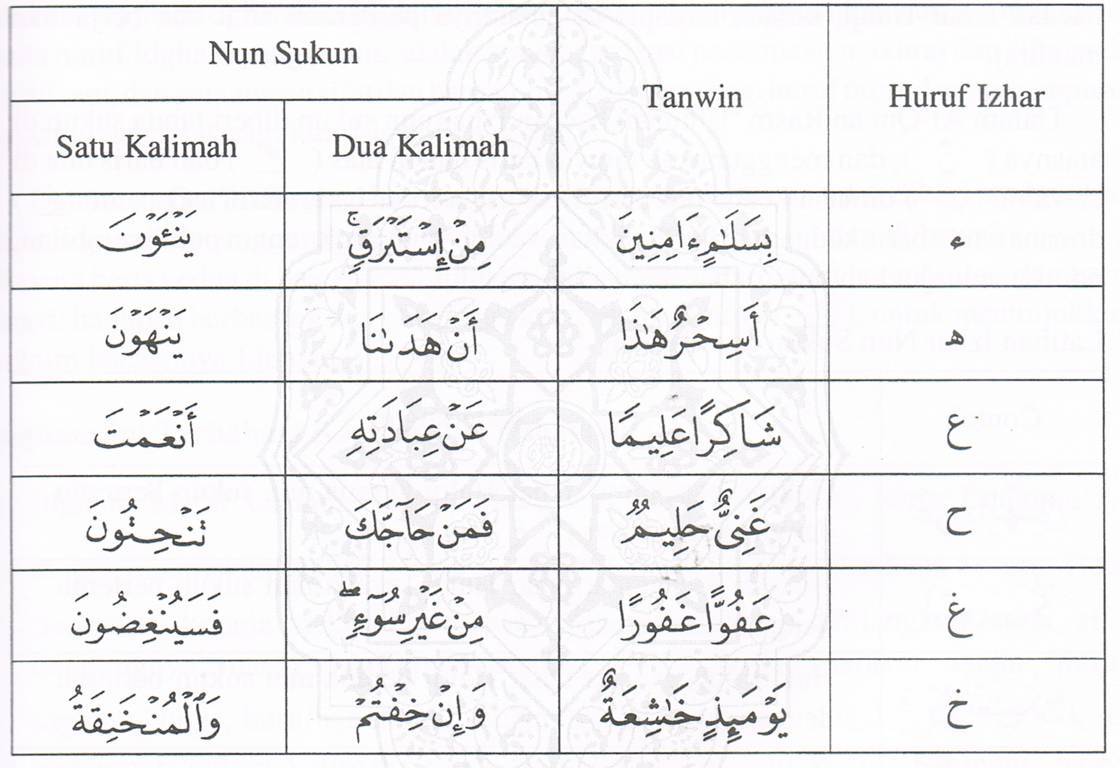 Nun Sukun
Tanwin
Huruf Izhar
Satu Kalimah
Dua Kalimah
يَنْـَٔوْنَ
مِنْ إِسْتَبْرَقٍ ۚ
بِسَلَـٰمٍ ءَامِنِينَ
ء
يَنْهَوْنَ
أَنْ هَدَىٰنَا
أَسِحْرٌ هَـٰذَا
ه
أَنْعَمْتَ
عَنْ عِبَادَتِهِ
شَاكِرًا عَلِيمًا
ع
تَنْحِتُونَ
فَمَنْ حَآجَّكَ
غَنِىٌّ حَلِيمٌ
ح
فَسَيُنْغِضُونَ
مِنْ غَيْرِ سُوٓءٍ ۖ
عَفُوًّا غَفُورًا
غ
وَٱلْمُنْخَنِقَةُ
وَإِنْ خِفْتُمْ
يَوْمَئِذٍ خَـٰشِعَةٌ
خ